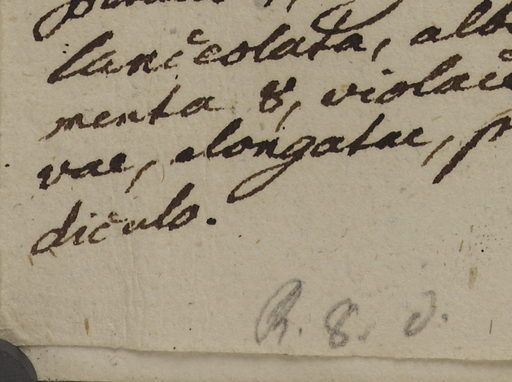 lanceolata, alb
menta 8, violace
vae, elongatae, p
diculo.
R. 8. d.